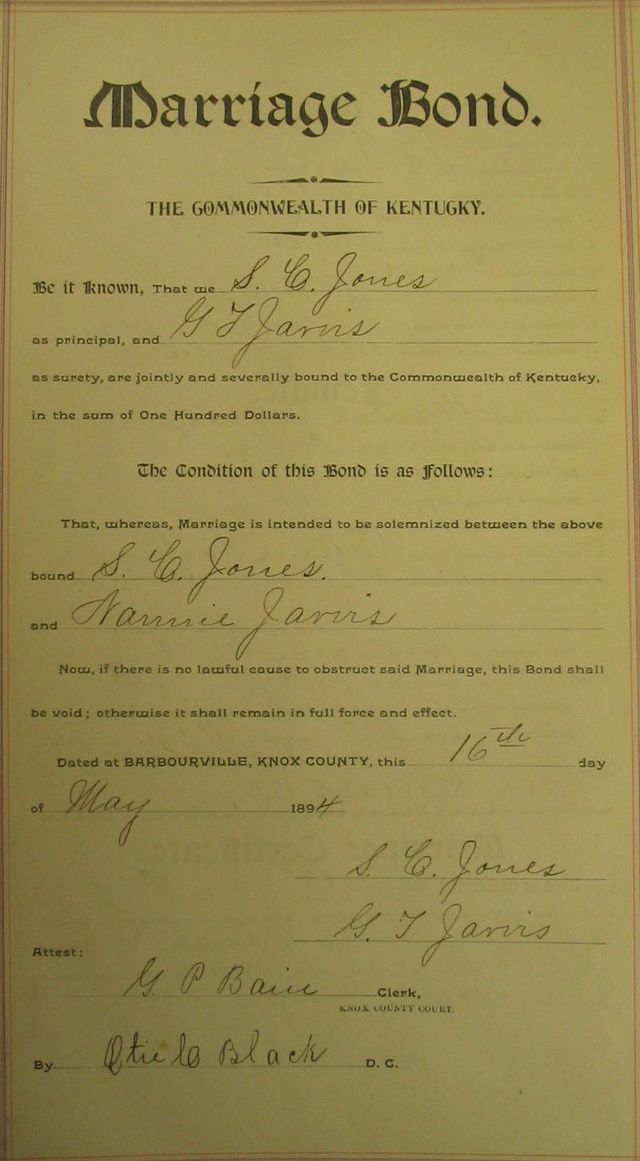 Marriage Bond.
THE COMMONWEALTH OF KENTUCKY.
Be it Known, That we S. C. Jones
as principal, and G T Jarvis
as surety, are jointly and severally bound to the Commonwealth of Kentucky,
in the sum of One Hundred Dollars.
The Condition of this Bond is as Follows:
That, whereas, Marriage is intended to be solemnized between the above
bound S. C. Jones.
and Nannie Jarvis
Now, if there is no lawful cause to obstruct said Marriage, this Bond shall
be void; otherwise it shall remain in full force and effect.
Dated at BARBOURVILLE, KNOX COUNTY, this 16th day
of May 1894
S. C. Jones
G. T Jarvis
Attest:
G P Bain Clerk,
KNOX COUNTY COURT.
By Black D. C.